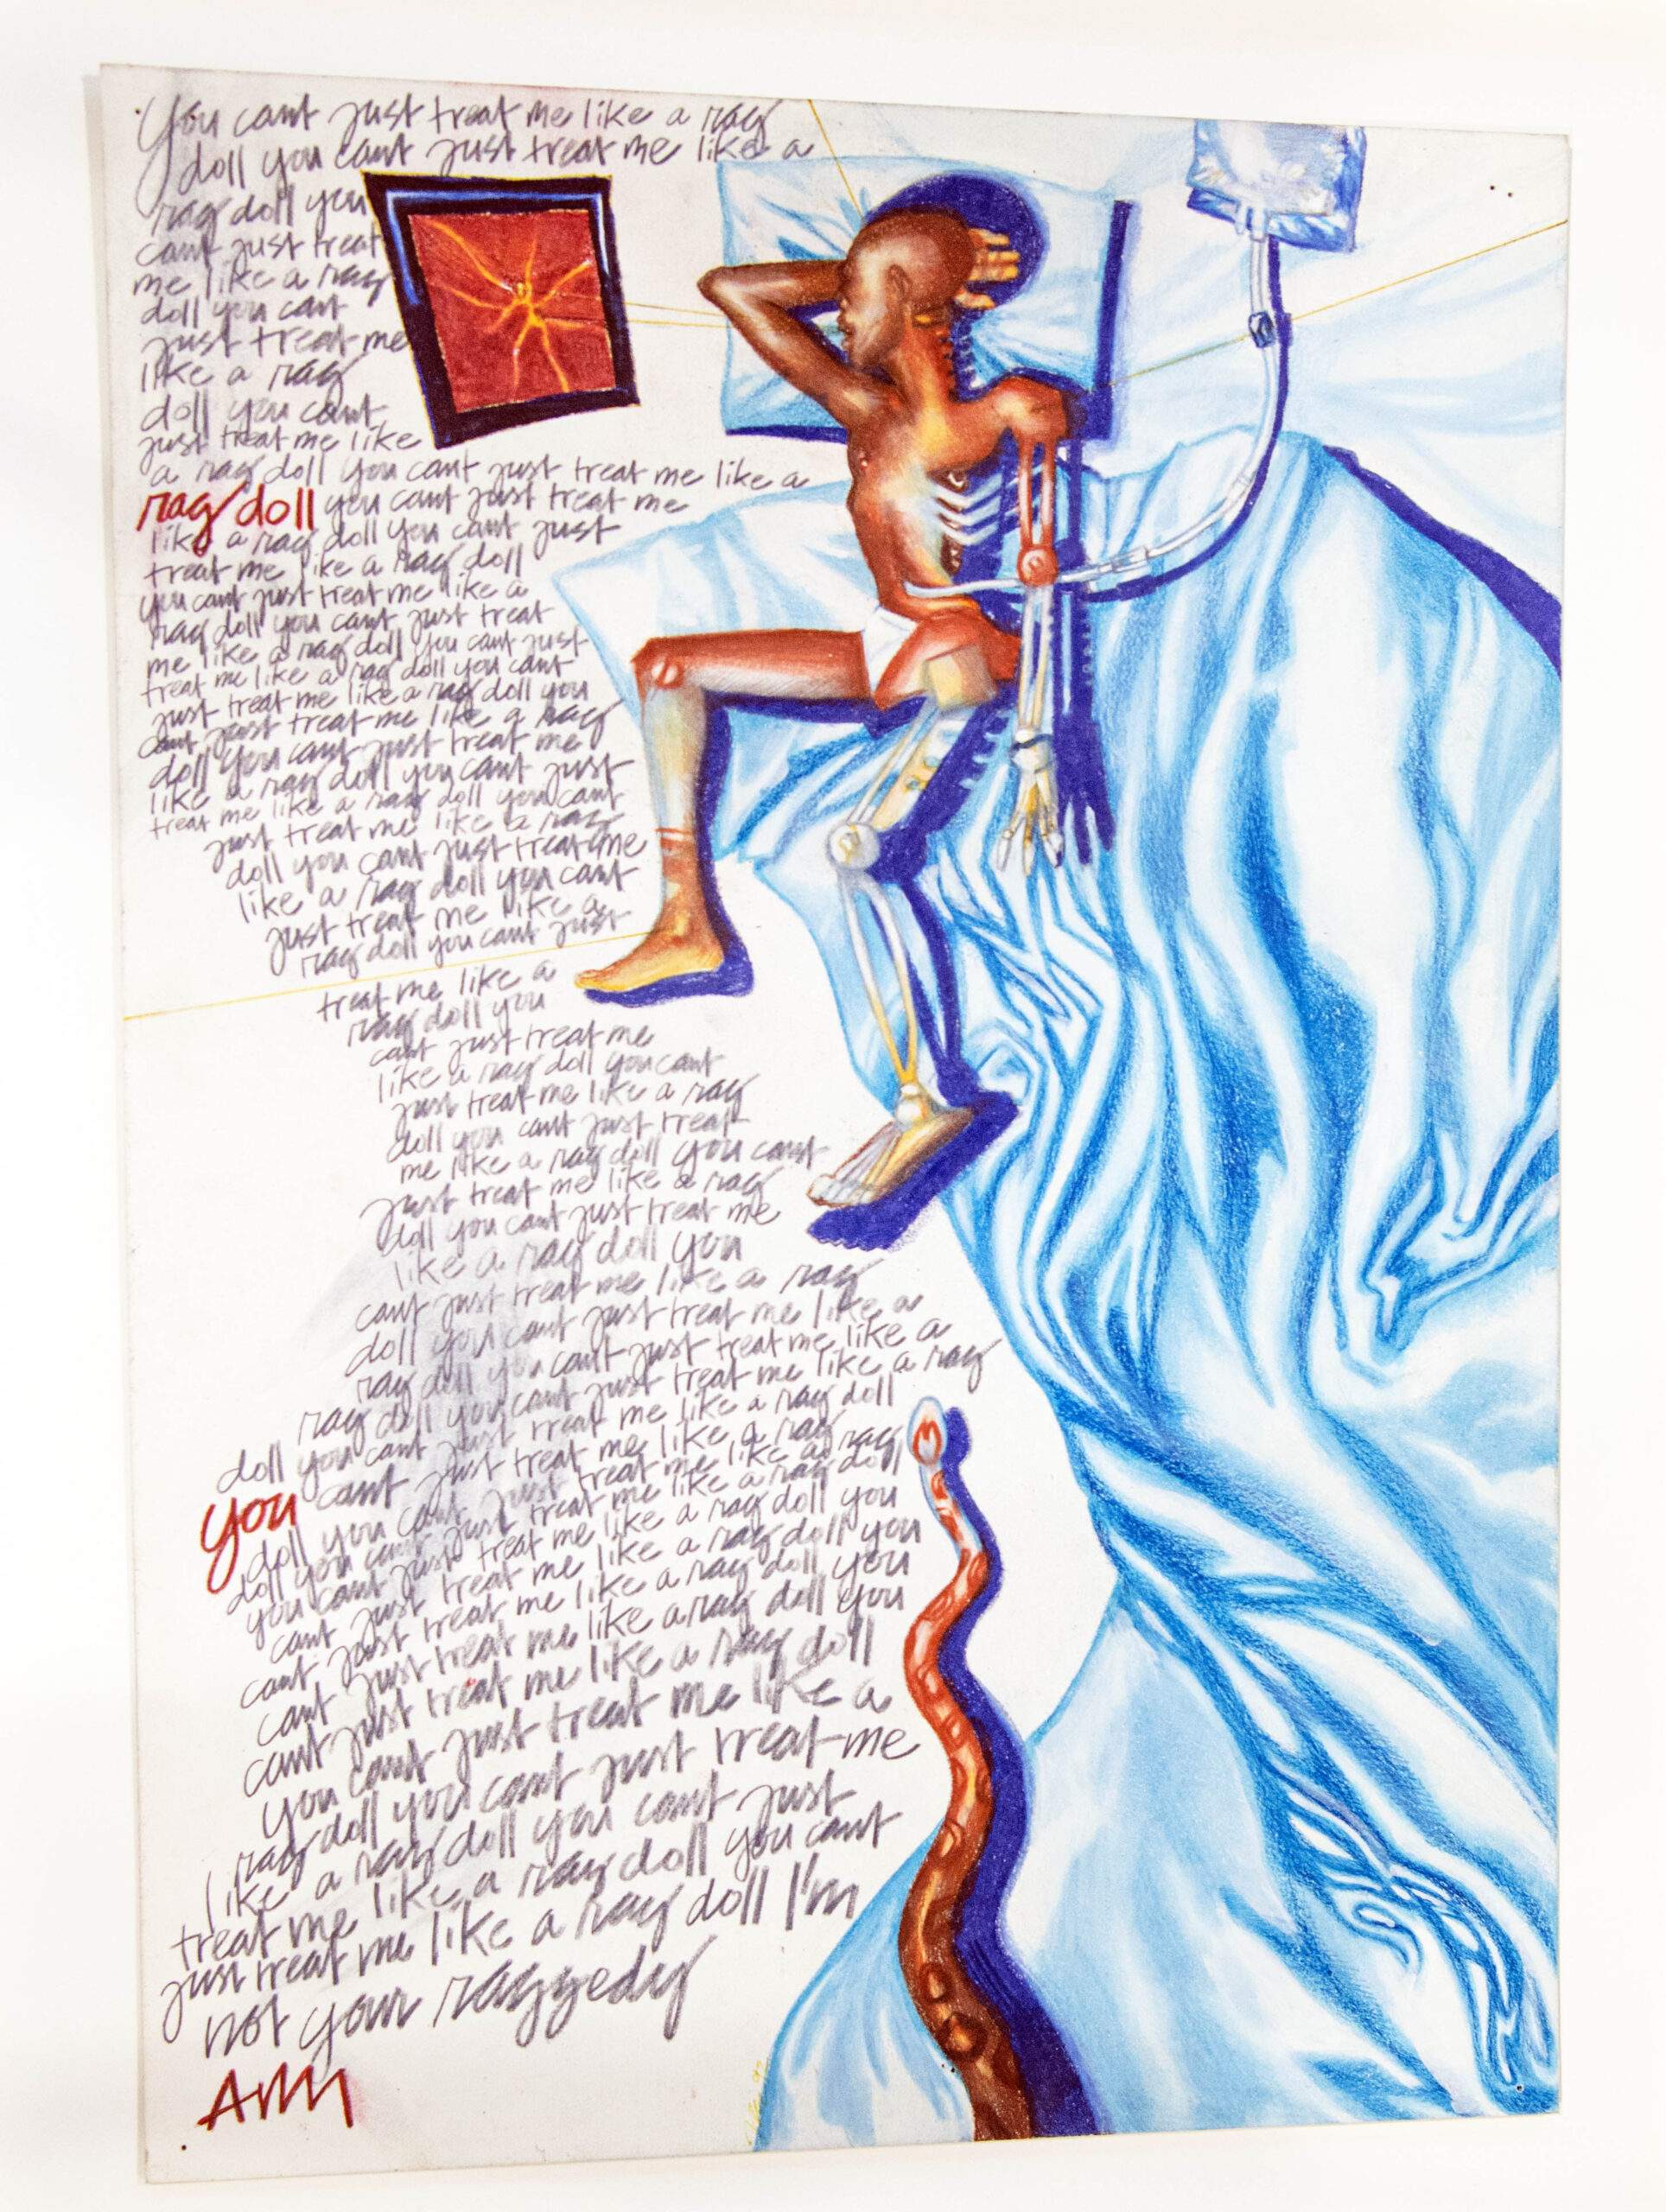 You cant just treat me like a rag
doll you cant just treat me like a
rag doll you
cant just treat
me like a rag
doll you cant
just treat me
like a rag
doll you cant
just treat me like
a rag doll you cant just treat me like a
rag doll you cant just treat me
like a rag doll you cant just
treat me like a rag doll
you cant just treat me like a
rag doll you cant just treat
me like a rag doll you cant just
treat me like a rag doll you cant
just treat me like a rag doll you
cant just treat me like a rag
doll you cant just treat me
like a rag doll you cant just
treat me like a rag doll you cant
just treat me like a rag
doll you cant just treat me
like a rag doll you cant
just treat me like a
rag doll you cant just
treat me like a
rag doll you
cant just treat me
like a rag doll you cant
just treat me like a rag
doll you cant just treat
me like a rag doll you cant
just treat me like a rag
doll you cant just treat me
like a rag doll you
cant just treat me like a rag
doll you cant just treat me like a
rag doll you cant just treat me like a
rag doll you cant just treat me like a rag
doll you cant just treat me like a rag doll
you cant just treat me like a rag
doll you cant just treat me like a rag
doll you cant just treat me like a rag doll
you cant just treat me like a rag doll you
cant just treat me like a rag doll you
cant just treat me like a rag doll you
cant just treat me like a rag doll you
cant just treat me like a rag doll
you cant just treat me like a
rag doll you cant just treat me
like a rag doll you cant just
treat me like a rag doll you cant
just treat me like a rag doll I'm
not your raggedy
Ann